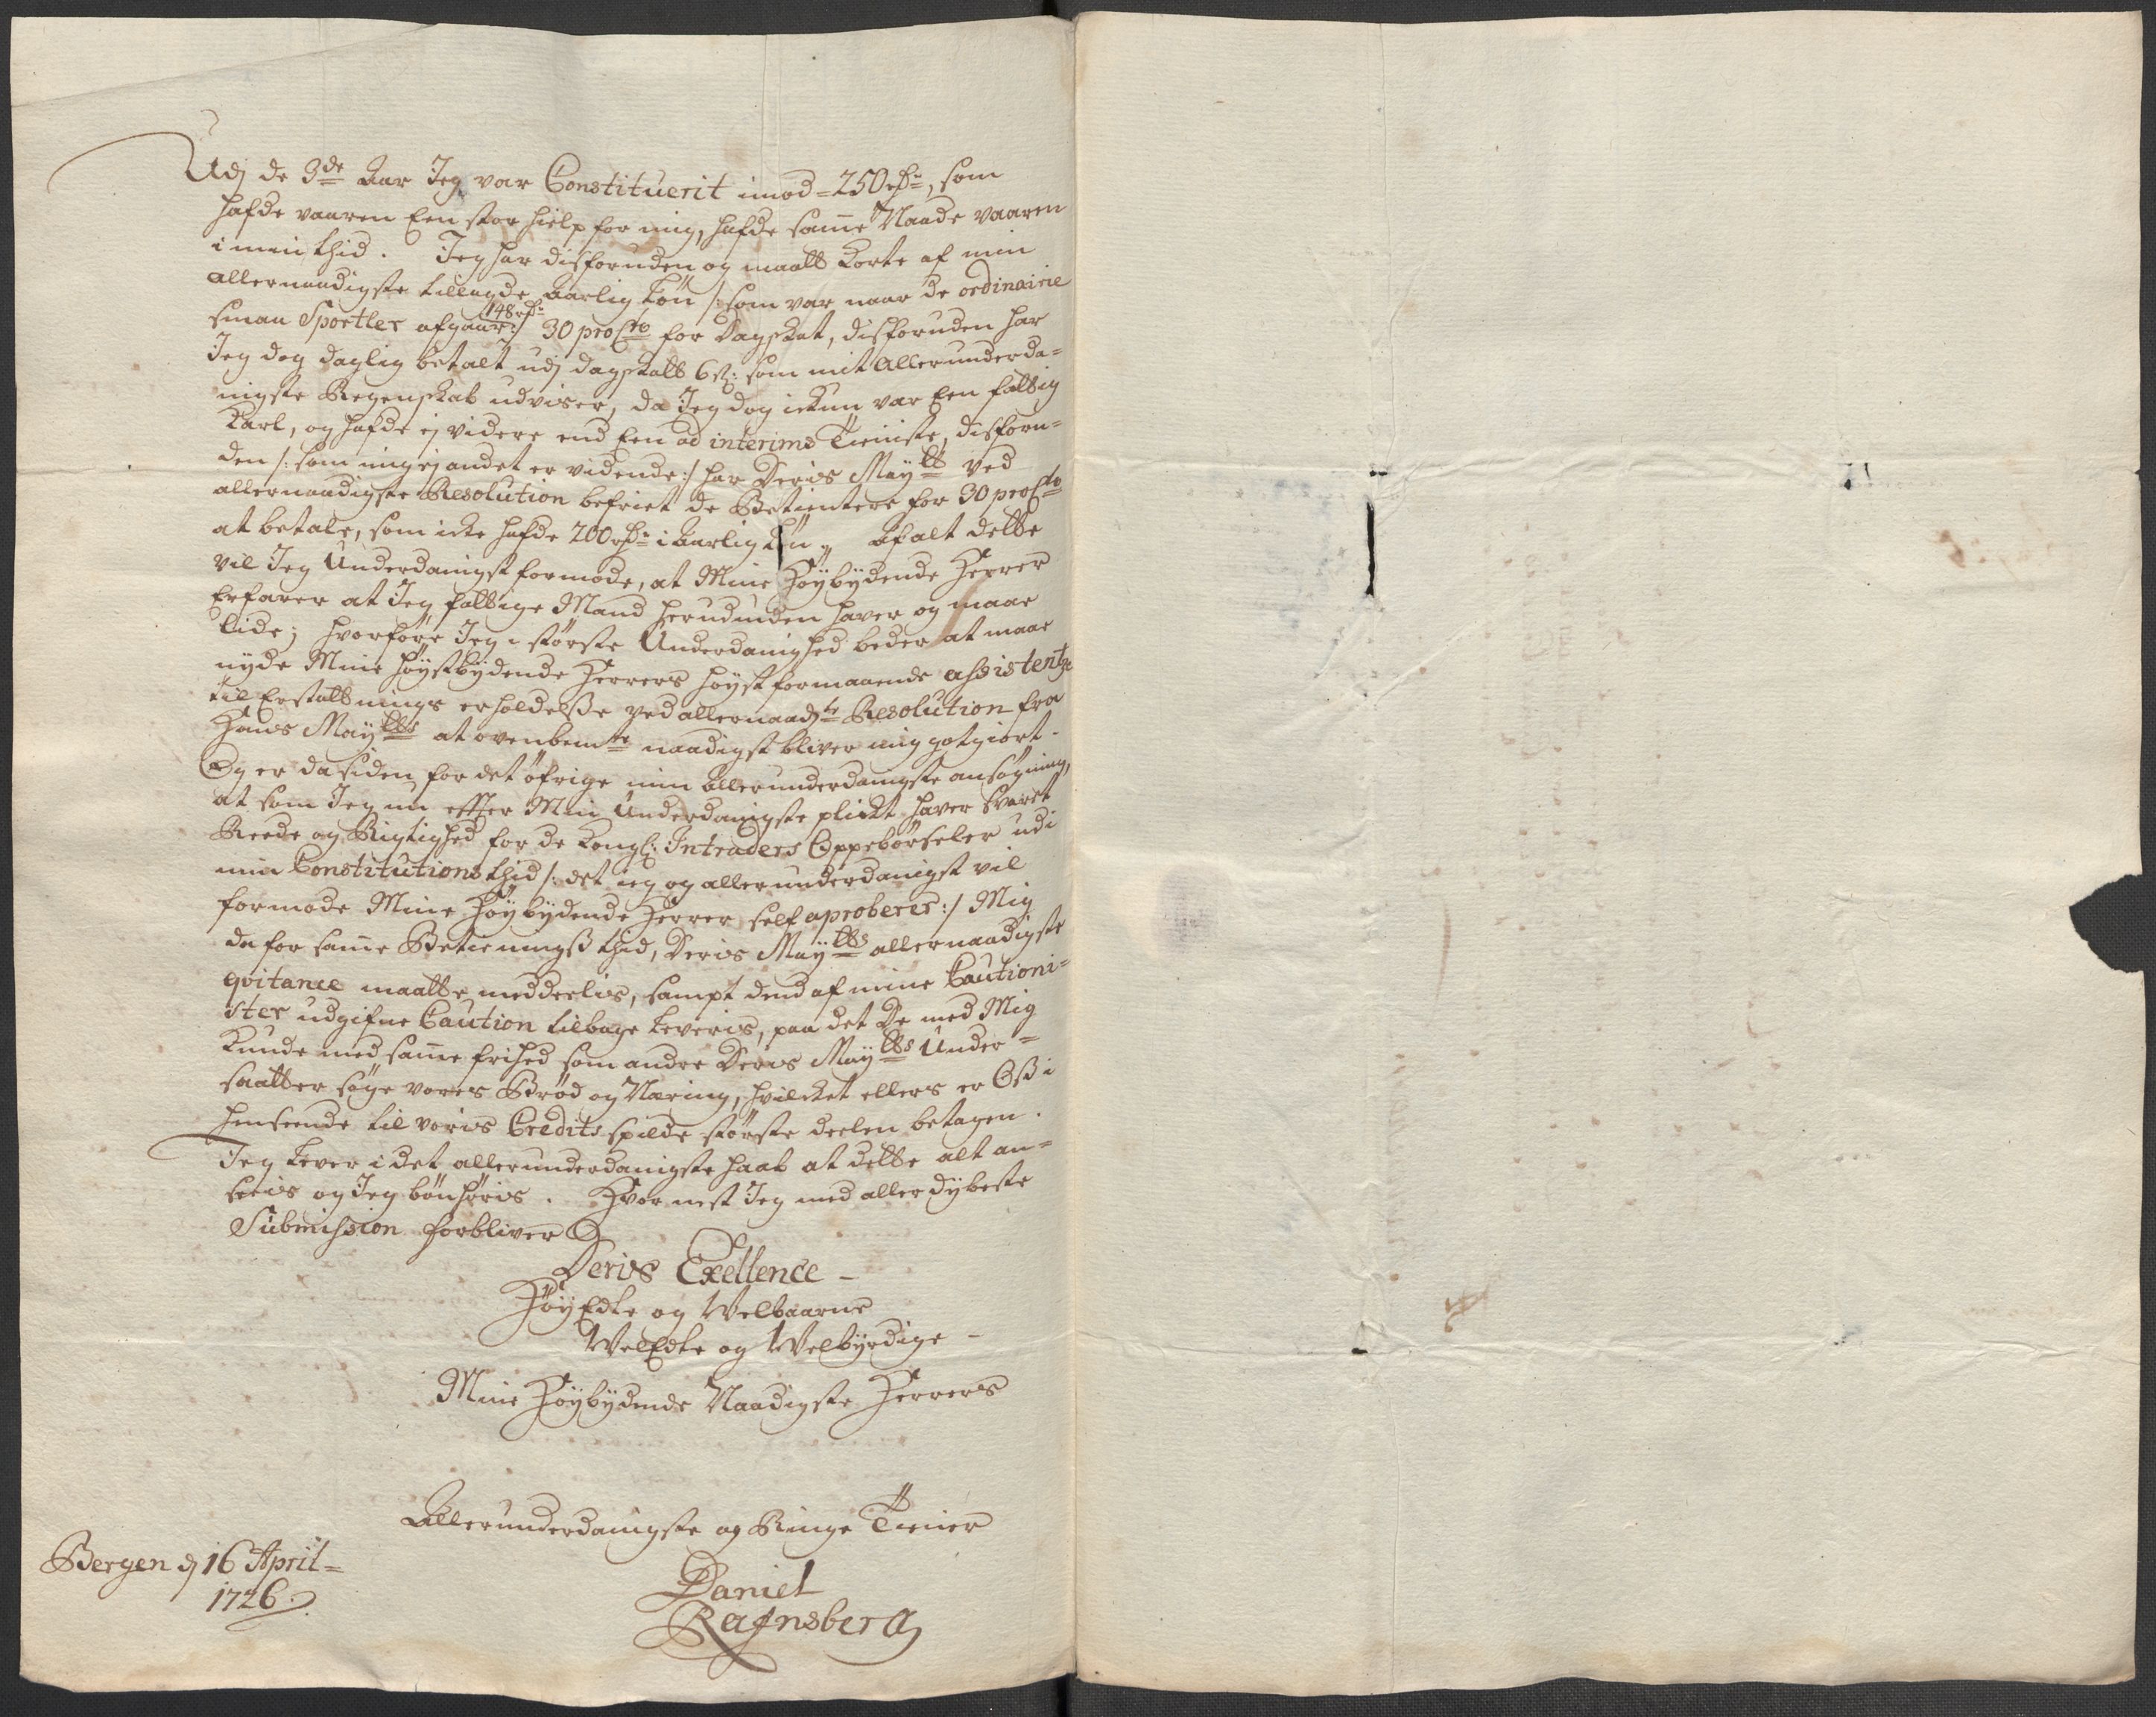 Udj de 3de Aar Jeg var Constituerit imod = 250 rdr, som
hafde vaaren Een stor hielp for mig, hafde samme Naade vaaren
i min thid. Jeg har disforuden og maatt korte af min
allernaadigste tillagde aarlig Løn /: som var naar de ordinairie
smaa Sportler afgaar 148 rdr :/ 30 pro Cto for Dagskat, disforuden har
Jeg dog daglig betalt udj dagskatt 6 s: som mit allerunderda=
nigste Regenskab udviser, da Jeg dog ickun var Een fattig
Karl, og hafde ej videre end Een ad interims Tieniste, disforu=
den /: som mig ej andet er vidende :/ har Deris Maytt ved
allernaadigste Resolution befriet de Betientere for 30 pro Cto
at betale, som icke hafde 200 rdr i aarlig Løn, Af alt dette
vil Jeg Underdanigst formode, at Mine Høybydende Herrer
Erfarer at Jeg fattige Mand herudinden haver og maae
lide; hvorføre Jeg i største Underdanighed beder at maae
nyde Mine Høystbydende Herrers høyst formaaende assistentze
til Erstattnings erholdelsse ved allernaadste Resolution fra
Hans Maytts at ovenbemte naadigst bliver mig gotgiort.
Og er da siden for det øfrige min allerunderdanigste ansøgning,
at som Jeg nu effter Min Underdanigste plicht haver svaret
Reede og Rigtighed for de Kongl: Intraders Oppebørseler udi
min Constitutions thid /: det ieg og allerunderdanigst vil
formode Mine Høybydende Herrer self aproberer :/ Mig
da for samme Betienings thid, Deris Maytts allernaadigste
qvitance maatte meddeelis, sampt dend af mine Cautioni=
ster udgifne Caution tilbage leveris, paa det De med Mig
kunde med samme frihed som andre Deris Maytts Under=
saatter søge vores Brød og Næring, hvilcket ellers er Oss i
henseende til voris Credits spilde største deelen betagen.
Jeg lever i det allerunderdanigste haab at dette alt an=
seeis og Jeg bønhøris. Hvor nest Jeg med allerdybeste
Submission forbliver
Deris Exellence -
HøyEdle og Welbaarne
WelEdle og Welbyrdige -
Mine Høybydende Naadigste Herrers
Allerunderdanigste og Ringe Tiener
Bergen d 16 April =
1726.
Daniel
Rafnsberg